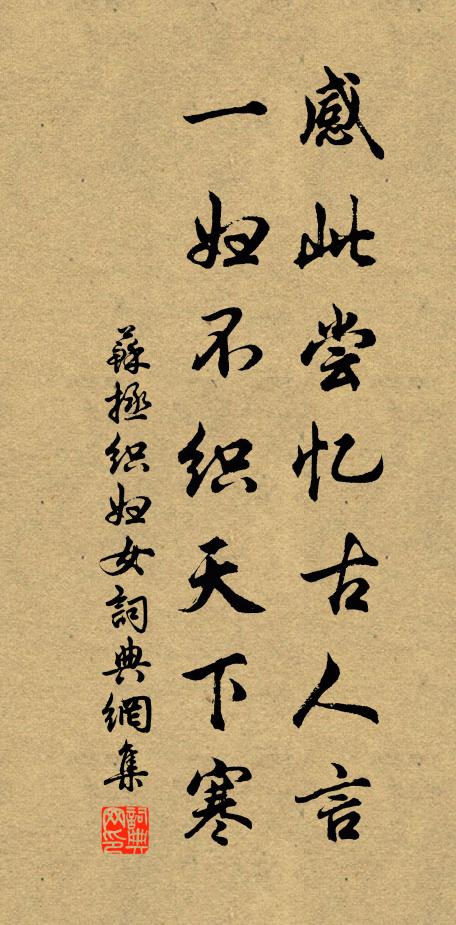 感此尝忆古人言
一妇不织天下寒
蘇拯织妇女詞典網集
詞典网印